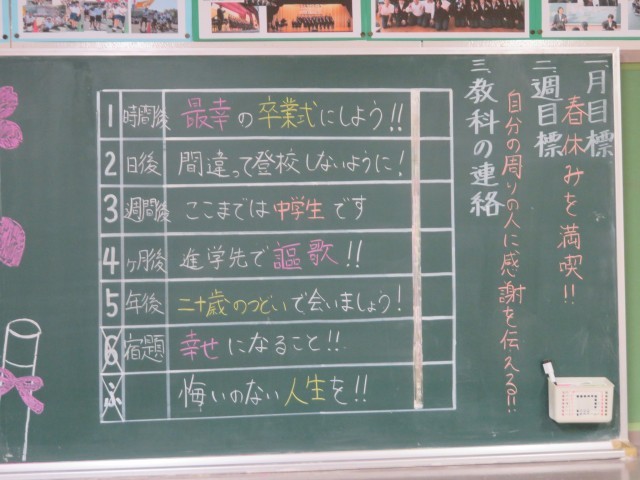 一、月目標
春休みを満喫!!
二、週目標
自分の周りの人に感謝を伝える!!
三、教科の連絡
1 時間後 最幸の卒業式にしよう!!
2 日後 間違って登校しないように!
3 週間後 ここまでは中学生です
4 ヶ月後 進学先で謳歌!!
5 年後 二十歳のつどいで会いましょう!
6 宿題 幸せになること!!
ふ 悔いのない人生を!!